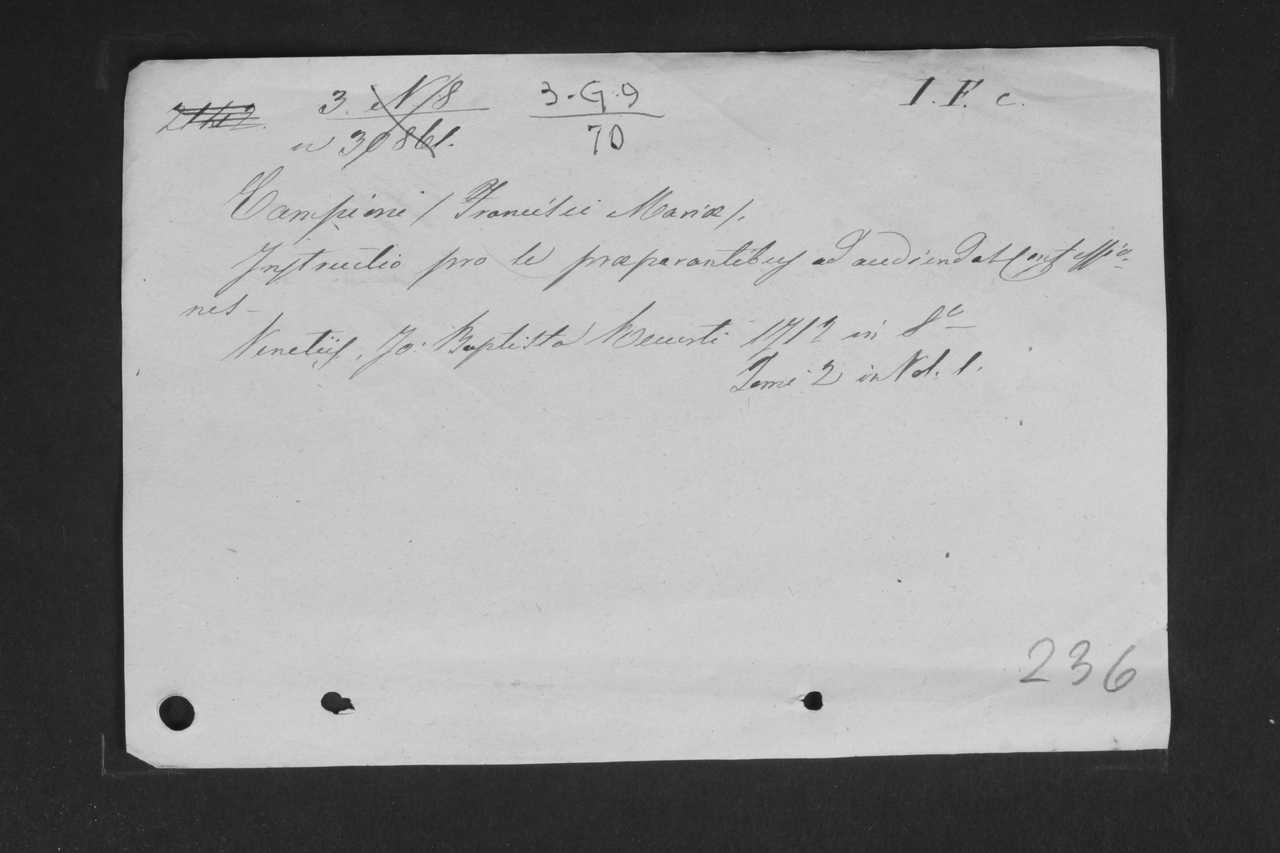 3. N 8 3-G.9 I. F. c.
70
Campioni / Francisci Mariæ /.
Instructio pro se præparantibus ad audiendas Confessio-
nes-
Venetiis, Jo: Baptista Recurti 1712 in 8º
Tomi 2 in Vol. 1.
236